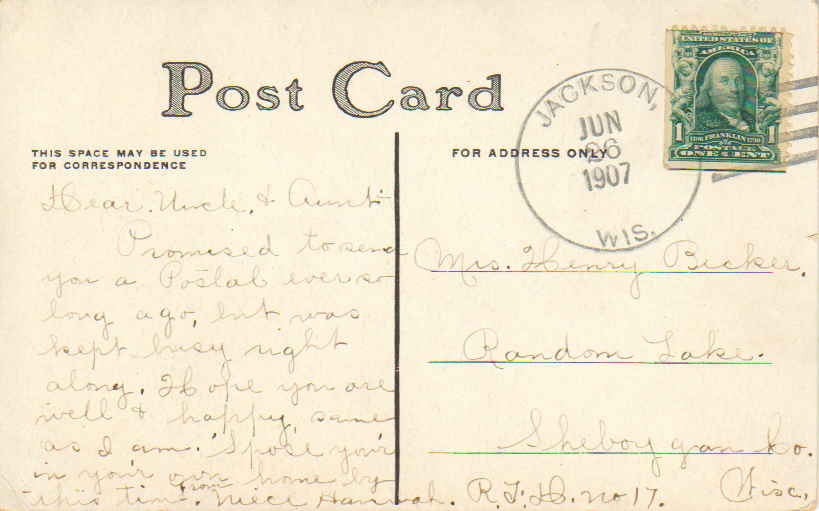 Post Card
THIS SPACE MAY BE USED
FOR CORRESPONDENCE
Dear Uncle, & Aunt
Promised to send
you a Postal ever so
long ago, but was
kept busy right
along. Hope you are
well & happy, same
as I am. 'Spose your
in your own home by
this time. from Niece Hannah.
FOR ADDRESS ONLY
JACKSON,
JUN
26
1907
WIS.
UNITED STATES OF
AMERICA
1 FRANKLIN 1
POSTAGE
ONE CENT
Mrs. Henry Becker.
Random Lake.
Sheboygan Co.
R.F.D. no 17. Wisc.